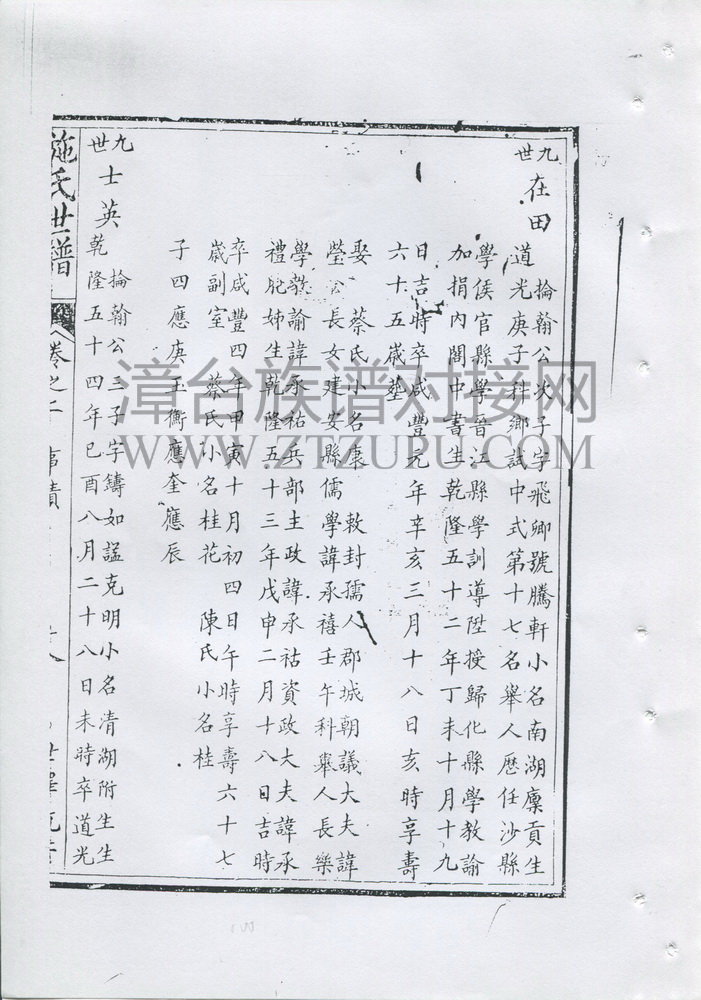 九世
在田
掄翰公次子字飛卿號騰軒小名南湖廩貢生
道光庚子科鄉試中式第十七名舉人歷任沙縣
學侯官縣學晉江縣學訓導陞授歸化縣學教諭
加捐內閣中書生乾隆五十二年丁未十月十九
日吉時卒咸豐元年辛亥三月十八日亥時享壽
六十五歲塟
娶 蔡氏小名康 敕封孺人郡城朝議大夫諱
瑩公長女建安縣儒學諱承禧壬午科舉人長樂
學教諭諱承祐兵部主政諱承祜資政大夫諱承
禮胞姊生乾隆五十三年戊申二月十八日吉時
卒咸豐四年甲寅十月初四日午時享壽六十七
歲副室 蔡氏小名桂花 陳氏小名桂
子四應庚玉衡應奎應辰
九世
士英
掄翰公三子字鑄如諡克明小名清湖附生生
乾隆五十四年己酉八月二十八日未時卒道光
施氏世譜
卷之二 事蹟
漳台族谱对接网
WWW.ZTZUPU.COM